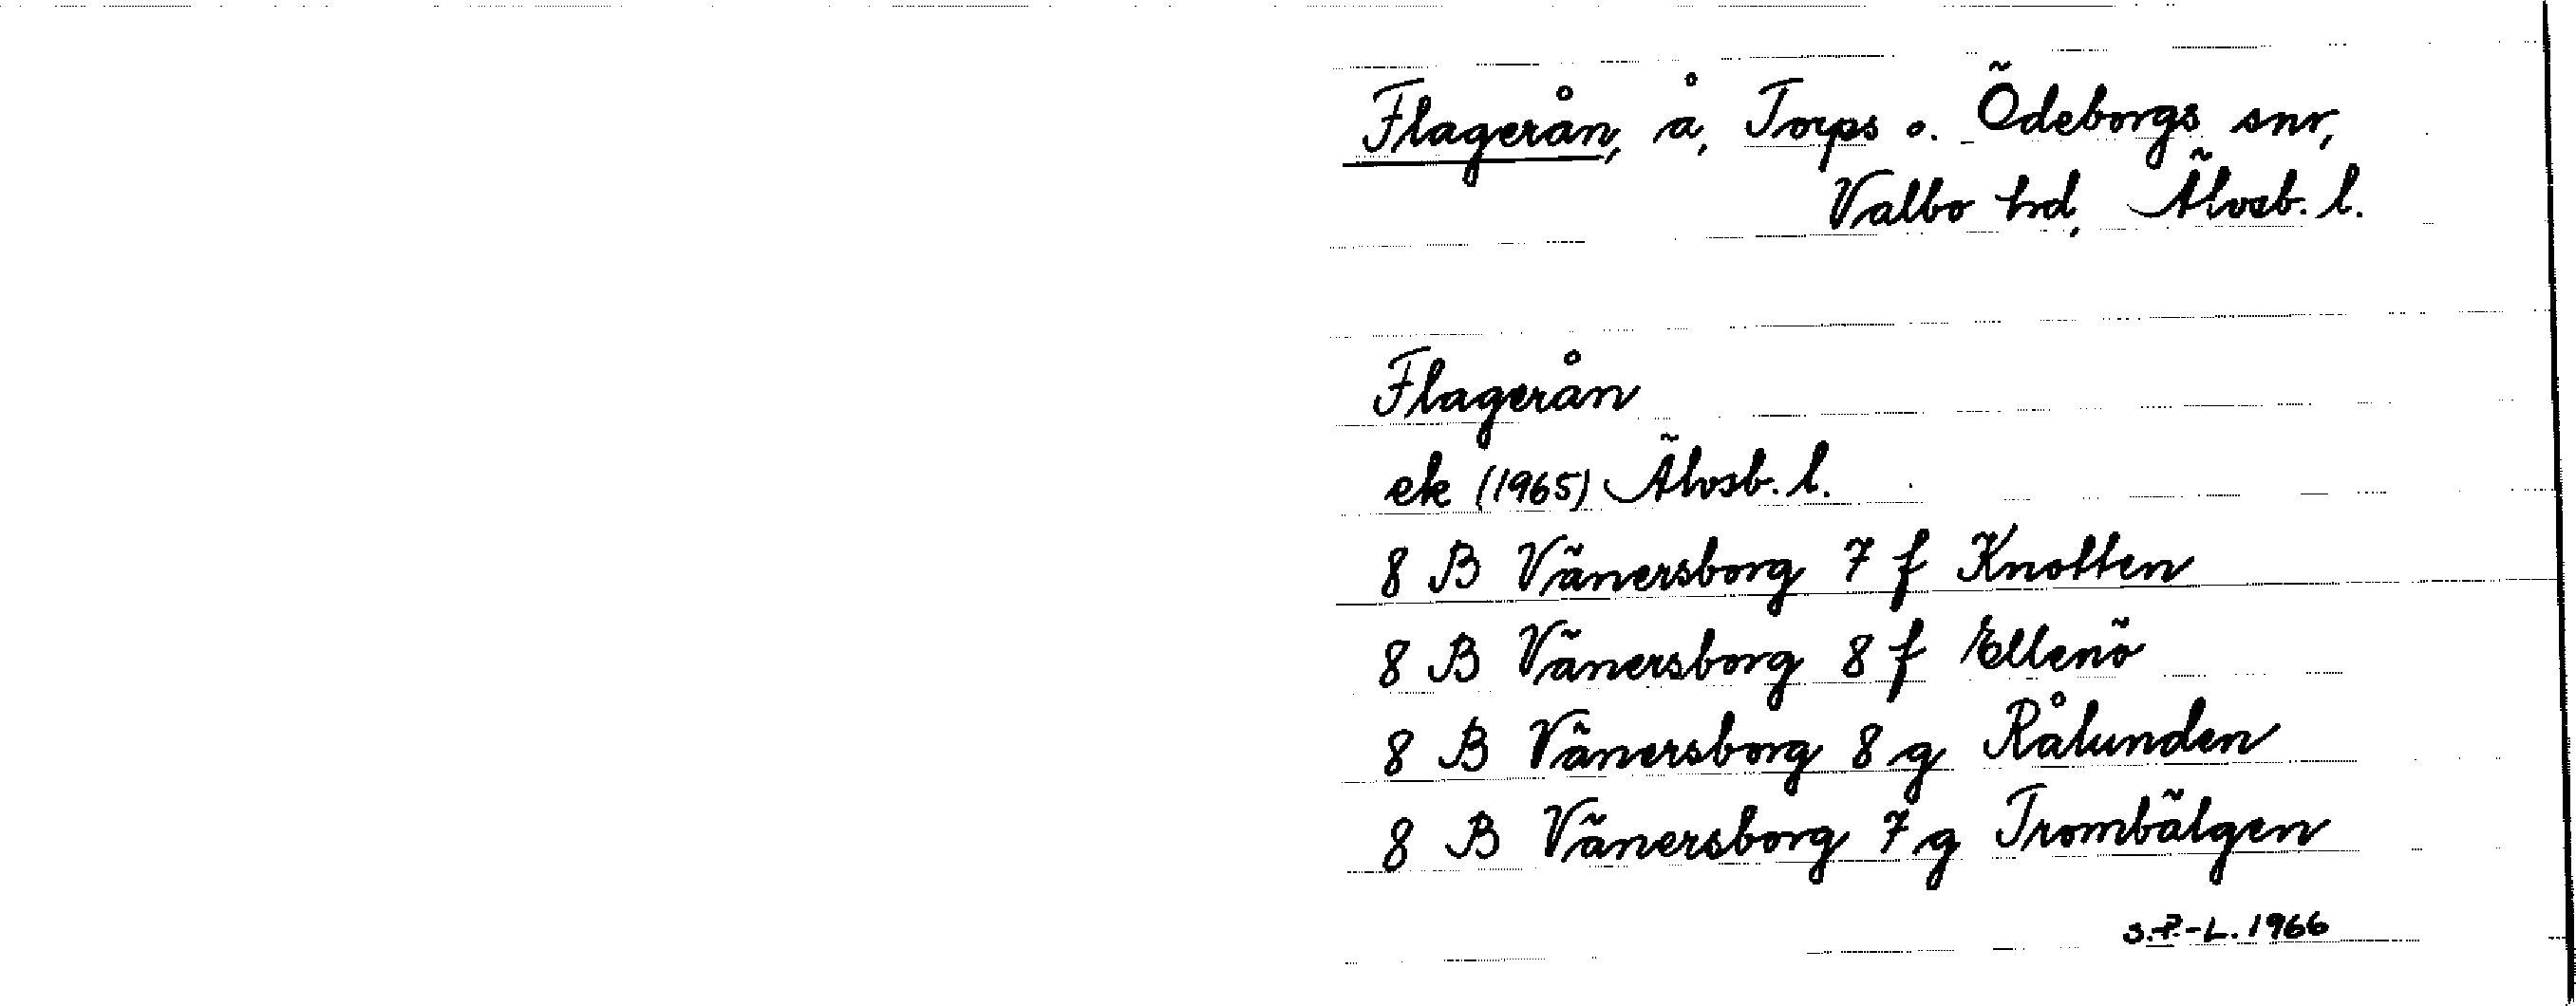 Flagerån, å, Torps o. Ödeborgs snr,
Valbo hd, Älvsb. l.
Flagerån
ek (1965) Älvsb. l.
8 B Vänersborg 7 f Knotten
8 B Vänersborg 8 f Ellenö
8 B Vänersborg 8 g Rålunden
8 B Vänersborg 7 g Trombälgen
S.P.-L. 1966